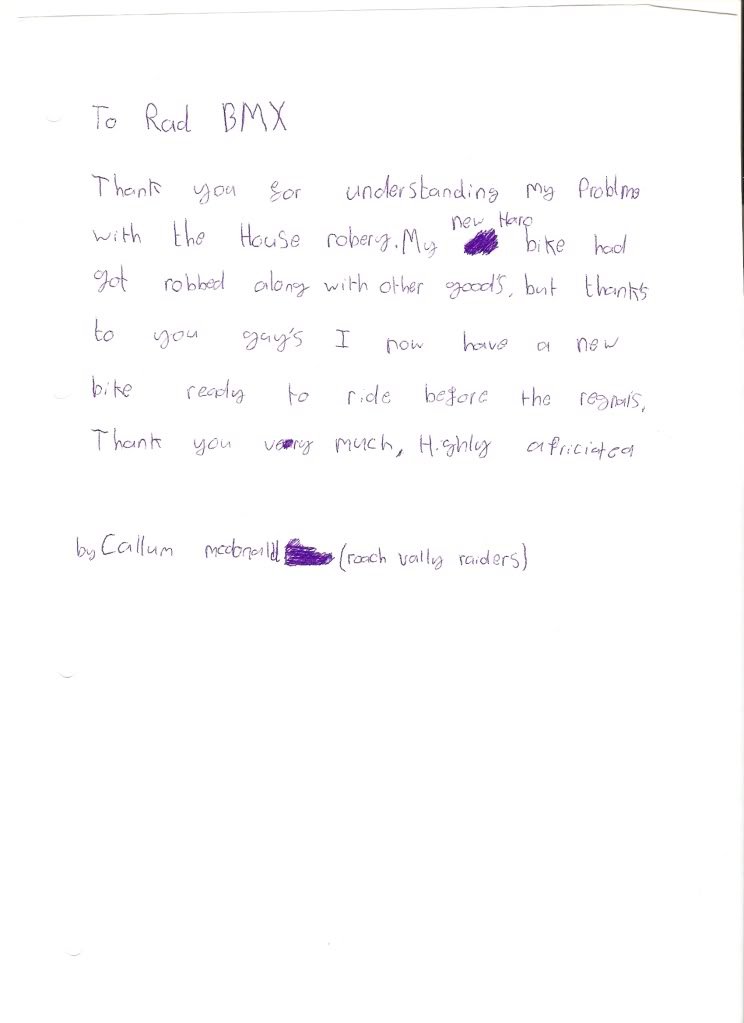 To Rad BMX
Thank you for understanding my Problms
new Haro
with the House robery. My bike had
got robbed along with other good's, but thank's
to you gay's I now have a new
bike ready to ride before the regnals,
Thank you very much, Highly africiated
by Callum mcdonalld (roach vally raiders)